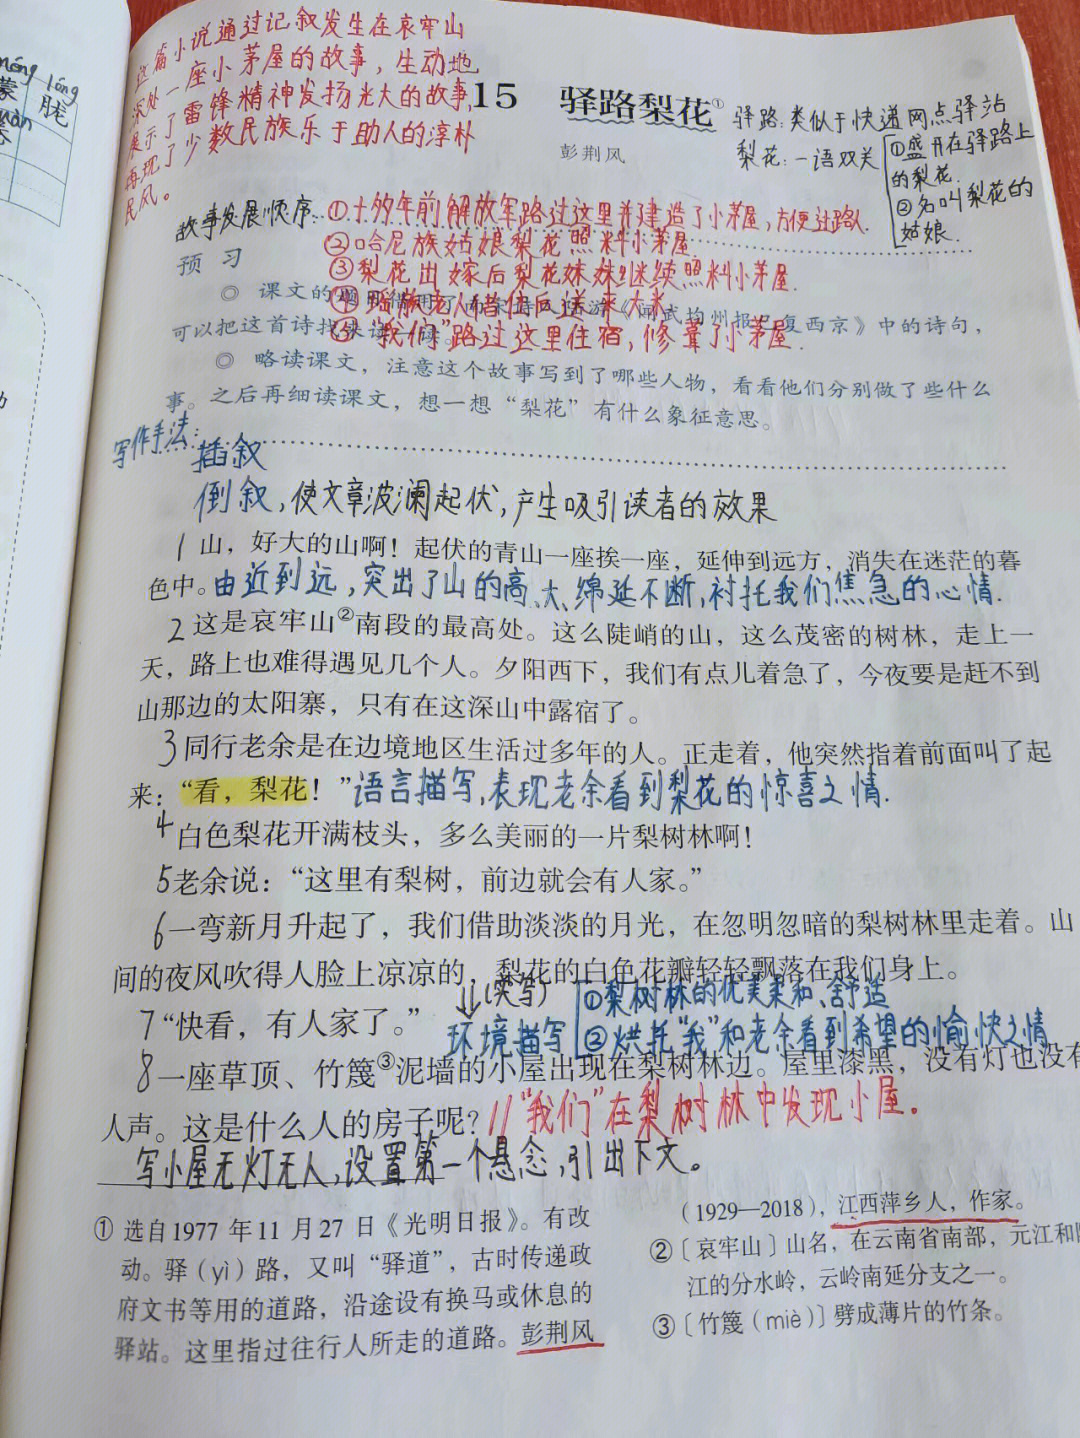 méng lóng
蒙
胧
这篇小说通过记叙发生在哀牢山
深处一座小茅屋的故事，生动地
展示了雷锋精神发扬光大的故事，
再现了少数民族乐于助人的淳朴
民风。
15 驿路梨花①
彭荆风
驿路：类似于快递网点驿站
梨花：一语双关
①盛开在驿路上
的梨花.
②名叫梨花的
姑娘.
故事发展顺序：①十多年前解放军路过这里并建造了小茅屋，方便过路人.
②哈尼族姑娘梨花照料小茅屋
③梨花出嫁后梨花妹妹继续照料小茅屋.
④瑶族老人借住后送来大米
⑤"我们"路过这里住宿，修葺了小茅屋.
预习
◎ 课文的 陆游《闻武均州报已复西京》中的诗句，
可以把这首诗找来读一读。
◎ 略读课文，注意这个故事写到了哪些人物，看看他们分别做了些什么
事。之后再细读课文，想一想“梨花”有什么象征意思。
写作手法：
插叙
倒叙，使文章波澜起伏，产生吸引读者的效果
1山，好大的山啊！起伏的青山一座挨一座，延伸到远方，消失在迷茫的暮
色中。由近到远，突出了山的高、大、绵延不断，衬托我们焦急的心情.
2 这是哀牢山②南段的最高处。这么陡峭的山，这么茂密的树林，走上一
天，路上也难得遇见几个人。夕阳西下，我们有点儿着急了，今夜要是赶不到
山那边的太阳寨，只有在这深山中露宿了。
3同行老余是在边境地区生活过多年的人。正走着，他突然指着前面叫了起
来：“看，梨花！”语言描写，表现老余看到梨花的惊喜之情.
4白色梨花开满枝头，多么美丽的一片梨树林啊！
5老余说：“这里有梨树，前边就会有人家。”
6一弯新月升起了，我们借助淡淡的月光，在忽明忽暗的梨树林里走着。山
间的夜风吹得人脸上凉凉的，梨花的白色花瓣轻轻飘落在我们身上。
(实写)
①梨树林的优美柔和、舒适
7“快看，有人家了。”
环境描写
②烘托"我"和老余看到希望的愉快之情
8一座草顶、竹篾③泥墙的小屋出现在梨树林边。屋里漆黑，没有灯也没有
人声。这是什么人的房子呢？//"我们"在梨树林中发现小屋。
写小屋无灯无人，设置第一个悬念，引出下文。
① 选自1977 年11 月27 日《光明日报》。有改
动。驿（yì）路，又叫“驿道”，古时传递政
府文书等用的道路，沿途设有换马或休息的
驿站。这里指过往行人所走的道路。彭荆风
（1929—2018），江西萍乡人，作家。
②〔哀牢山〕山名，在云南省南部，元江和
江的分水岭，云岭南延分支之一。
③〔竹篾（miè）〕劈成薄片的竹条。